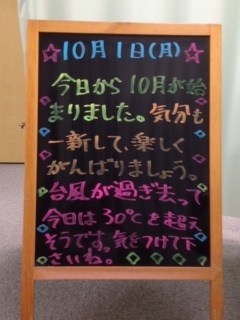 ☆10月1日(月)☆
今日から10月が始
まりました。気分も
一新して、楽しく
がんばりましょう。
台風が過ぎ去って
今日は30℃を超え
そうです。気をつけて下
さいね。